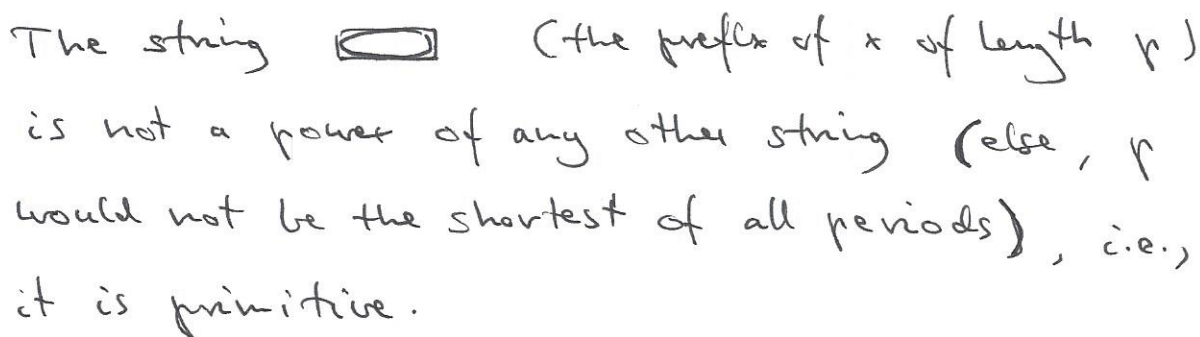 The string (the prefix of x of length p)
is not a power of any other string (else, p
would not be the shortest of all periods), i.e.,
it is primitive.